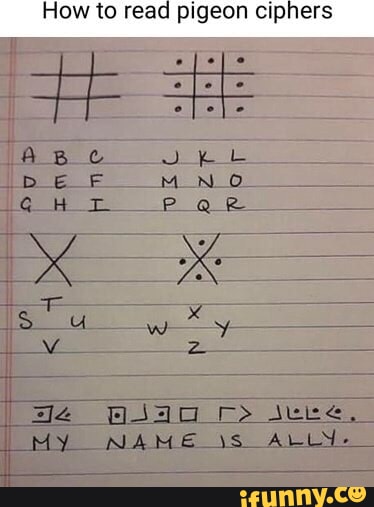 How to read pigeon ciphers
A B C J K L
D E F M N O
G H I P Q R
T X
S U W Y
V Z
MY NAME IS ALLY.
ifunny.co